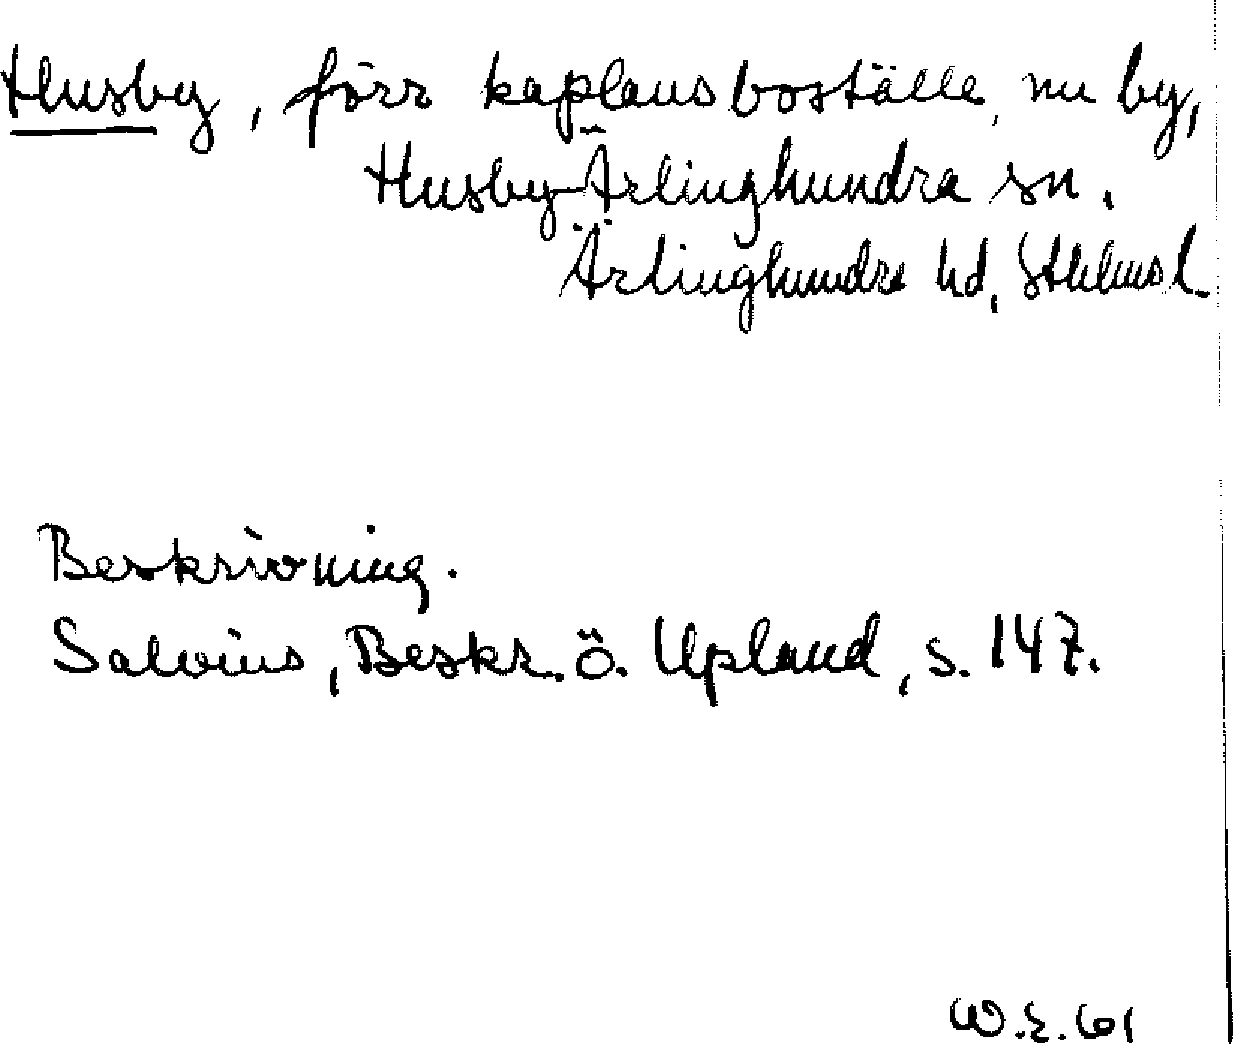 Husby, förr kaplansboställe, nu by,
Husby-Ärlinghundra sn.
Ärlinghundra hd, Sthlms l.
Beskrivning.
Salvius, Beskr. ö. Upland, s. 147.
W.E. 61